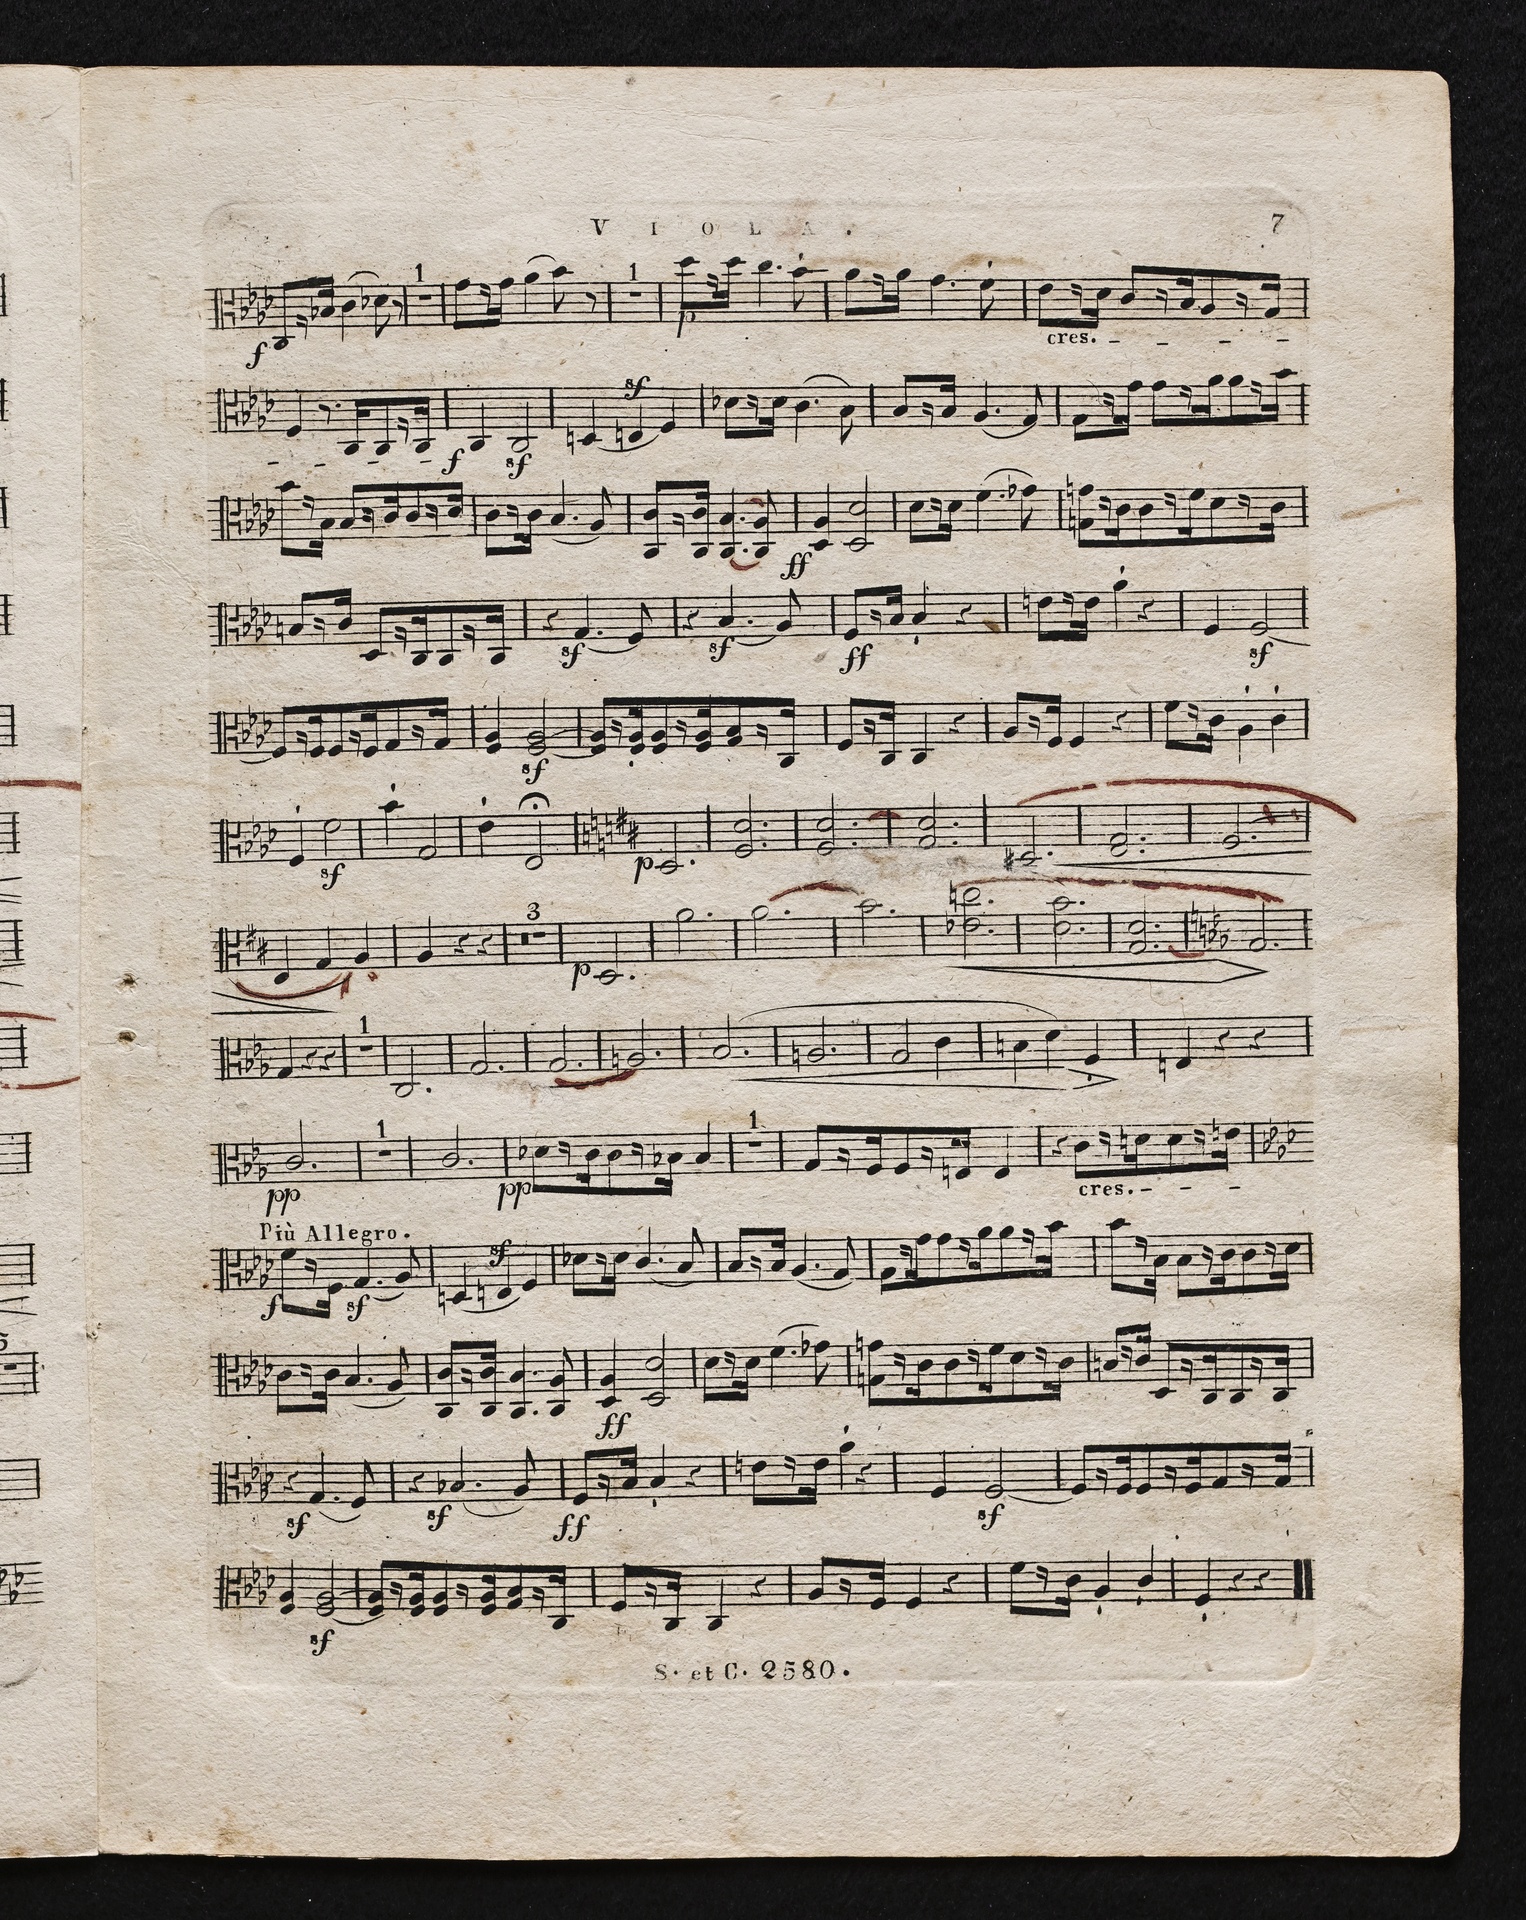 VIOLA.
7
1 1
f p cres.
sf
f sf
ff
sf sf ff sf
sf
sf p
3
p
1
1 1
pp pp cres.
Più Allegro.
f sf sf
ff
sf sf ff sf
sf
S. et C. 2580.